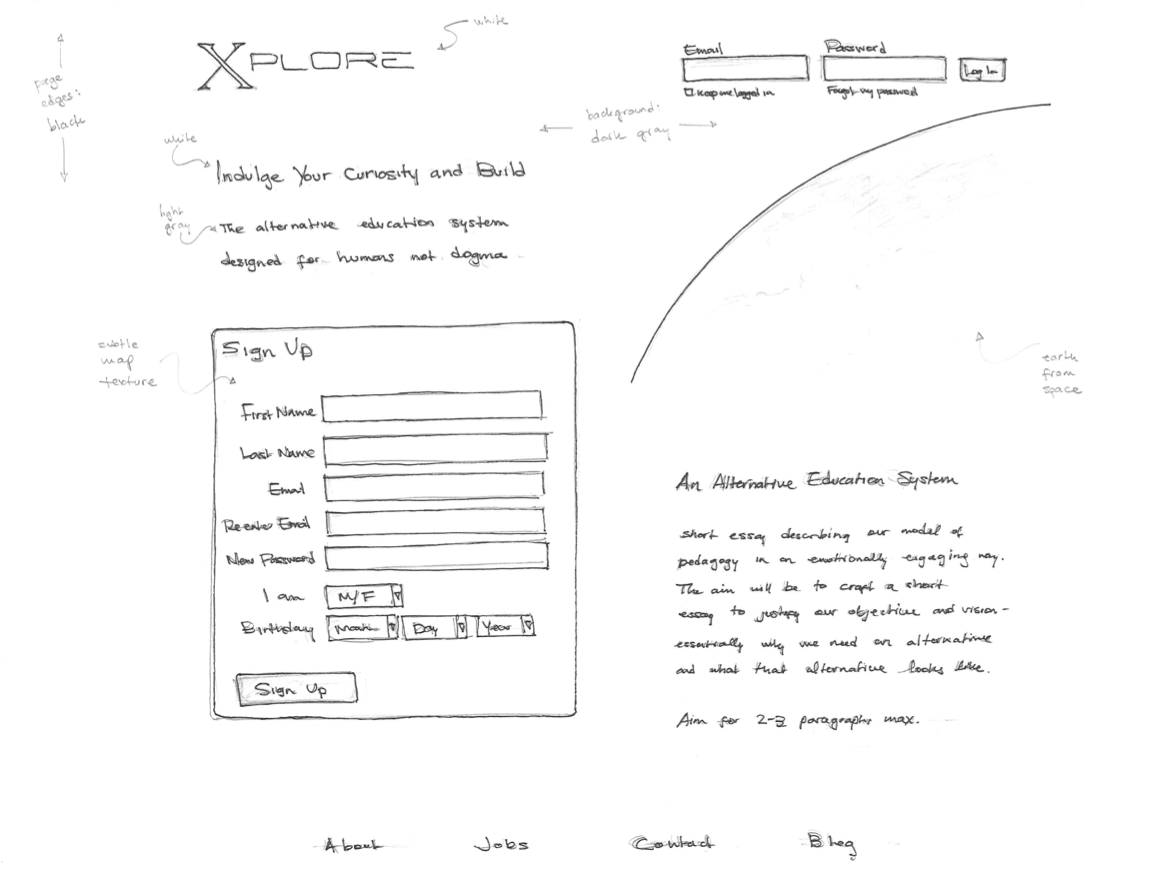 XPLORE
white
Email
Password
Log In
Keep me logged in
Forgot my password
page
edges:
black
background:
dark gray
white
Indulge Your Curiosity and Build
light
gray
The alternative education system
designed for humans not dogma
subtle
map
texture
Sign Up
First Name
Last Name
Email
Re-enter Email
New Password
I am
M/F
Birthday
Month
Day
Year
Sign Up
earth
from
space
An Alternative Education System
short essay describing our model of
pedagogy in an emotionally engaging way.
The aim will be to craft a short
essay to justify our objective and vision-
essentially why we need an alternative
and what that alternative looks like.
Aim for 2-3 paragraphs max.
About
Jobs
Contact
Blog